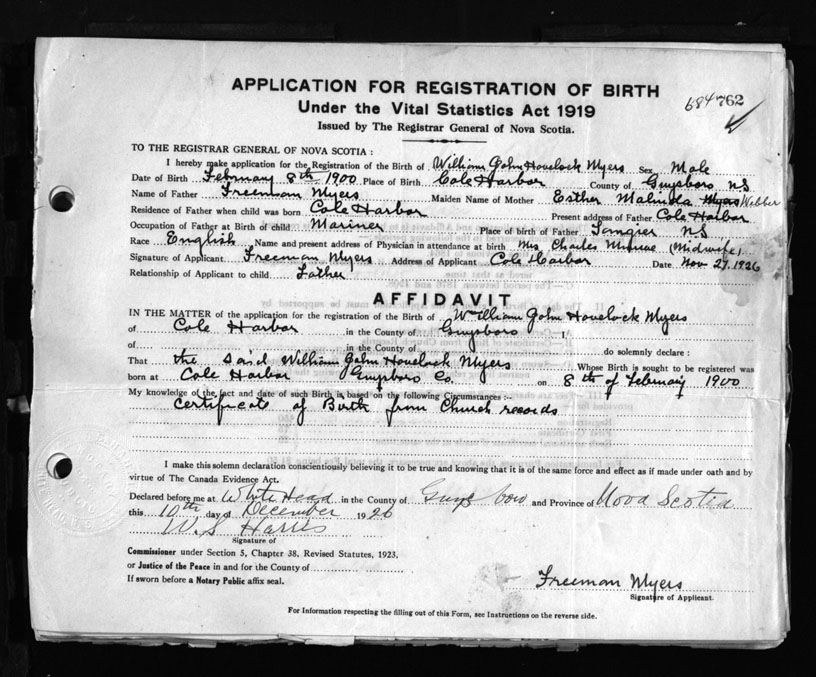 APPLICATION FOR REGISTRATION OF BIRTH
684762
Under the Vital Statistics Act 1919
Issued by The Registrar General of Nova Scotia.
TO THE REGISTRAR GENERAL OF NOVA SCOTIA :
I hereby make application for the Registration of the Birth of William John Havelock Myers Sex Male
Date of Birth February 8th 1900 Place of Birth Cole Harbor County of Guysboro NS
Name of Father Freeman Myers Maiden Name of Mother Esther Malinda Myers Webber
Residence of Father when child was born Cole Harbor Present address of Father Cole Harbor
Occupation of Father at Birth of child Mariner Place of birth of Father Tangier N.S
Race English Name and present address of Physician in attendance at birth Mrs Charles Munroe (Midwife)
Signature of Applicant Freeman Myers Address of Applicant Cole Harbor Date Nov 27, 1926
Relationship of Applicant to child Father
AFFIDAVIT
IN THE MATTER of the application for the registration of the Birth of William John Havelock Myers
of Cole Harbor in the County of Guysboro
of in the County of do solemnly declare :
That the said William John Havelock Myers Whose Birth is sought to be registered was
born at Cole Harbor Guysboro Co. on 8th of February 1900
My knowledge of the fact and date of such Birth is based on the following Circumstances :-
Certificate of Birth from Church records
I make this solemn declaration conscientiously believing it to be true and knowing that it is of the same force and effect as if made under oath and by
virtue of The Canada Evidence Act.
Declared before me at White Head in the County of Guysboro and Province of Nova Scotia
this 10th day of December 1926
W. S Harris
Signature of
Commissioner under Section 5, Chapter 38, Revised Statutes, 1923.
or Justice of the Peace in and for the County of
If sworn before a Notary Public affix seal.
Freeman Myers
Signature of Applicant.
For Information respecting the filling out of this Form, see Instructions on the reverse side.